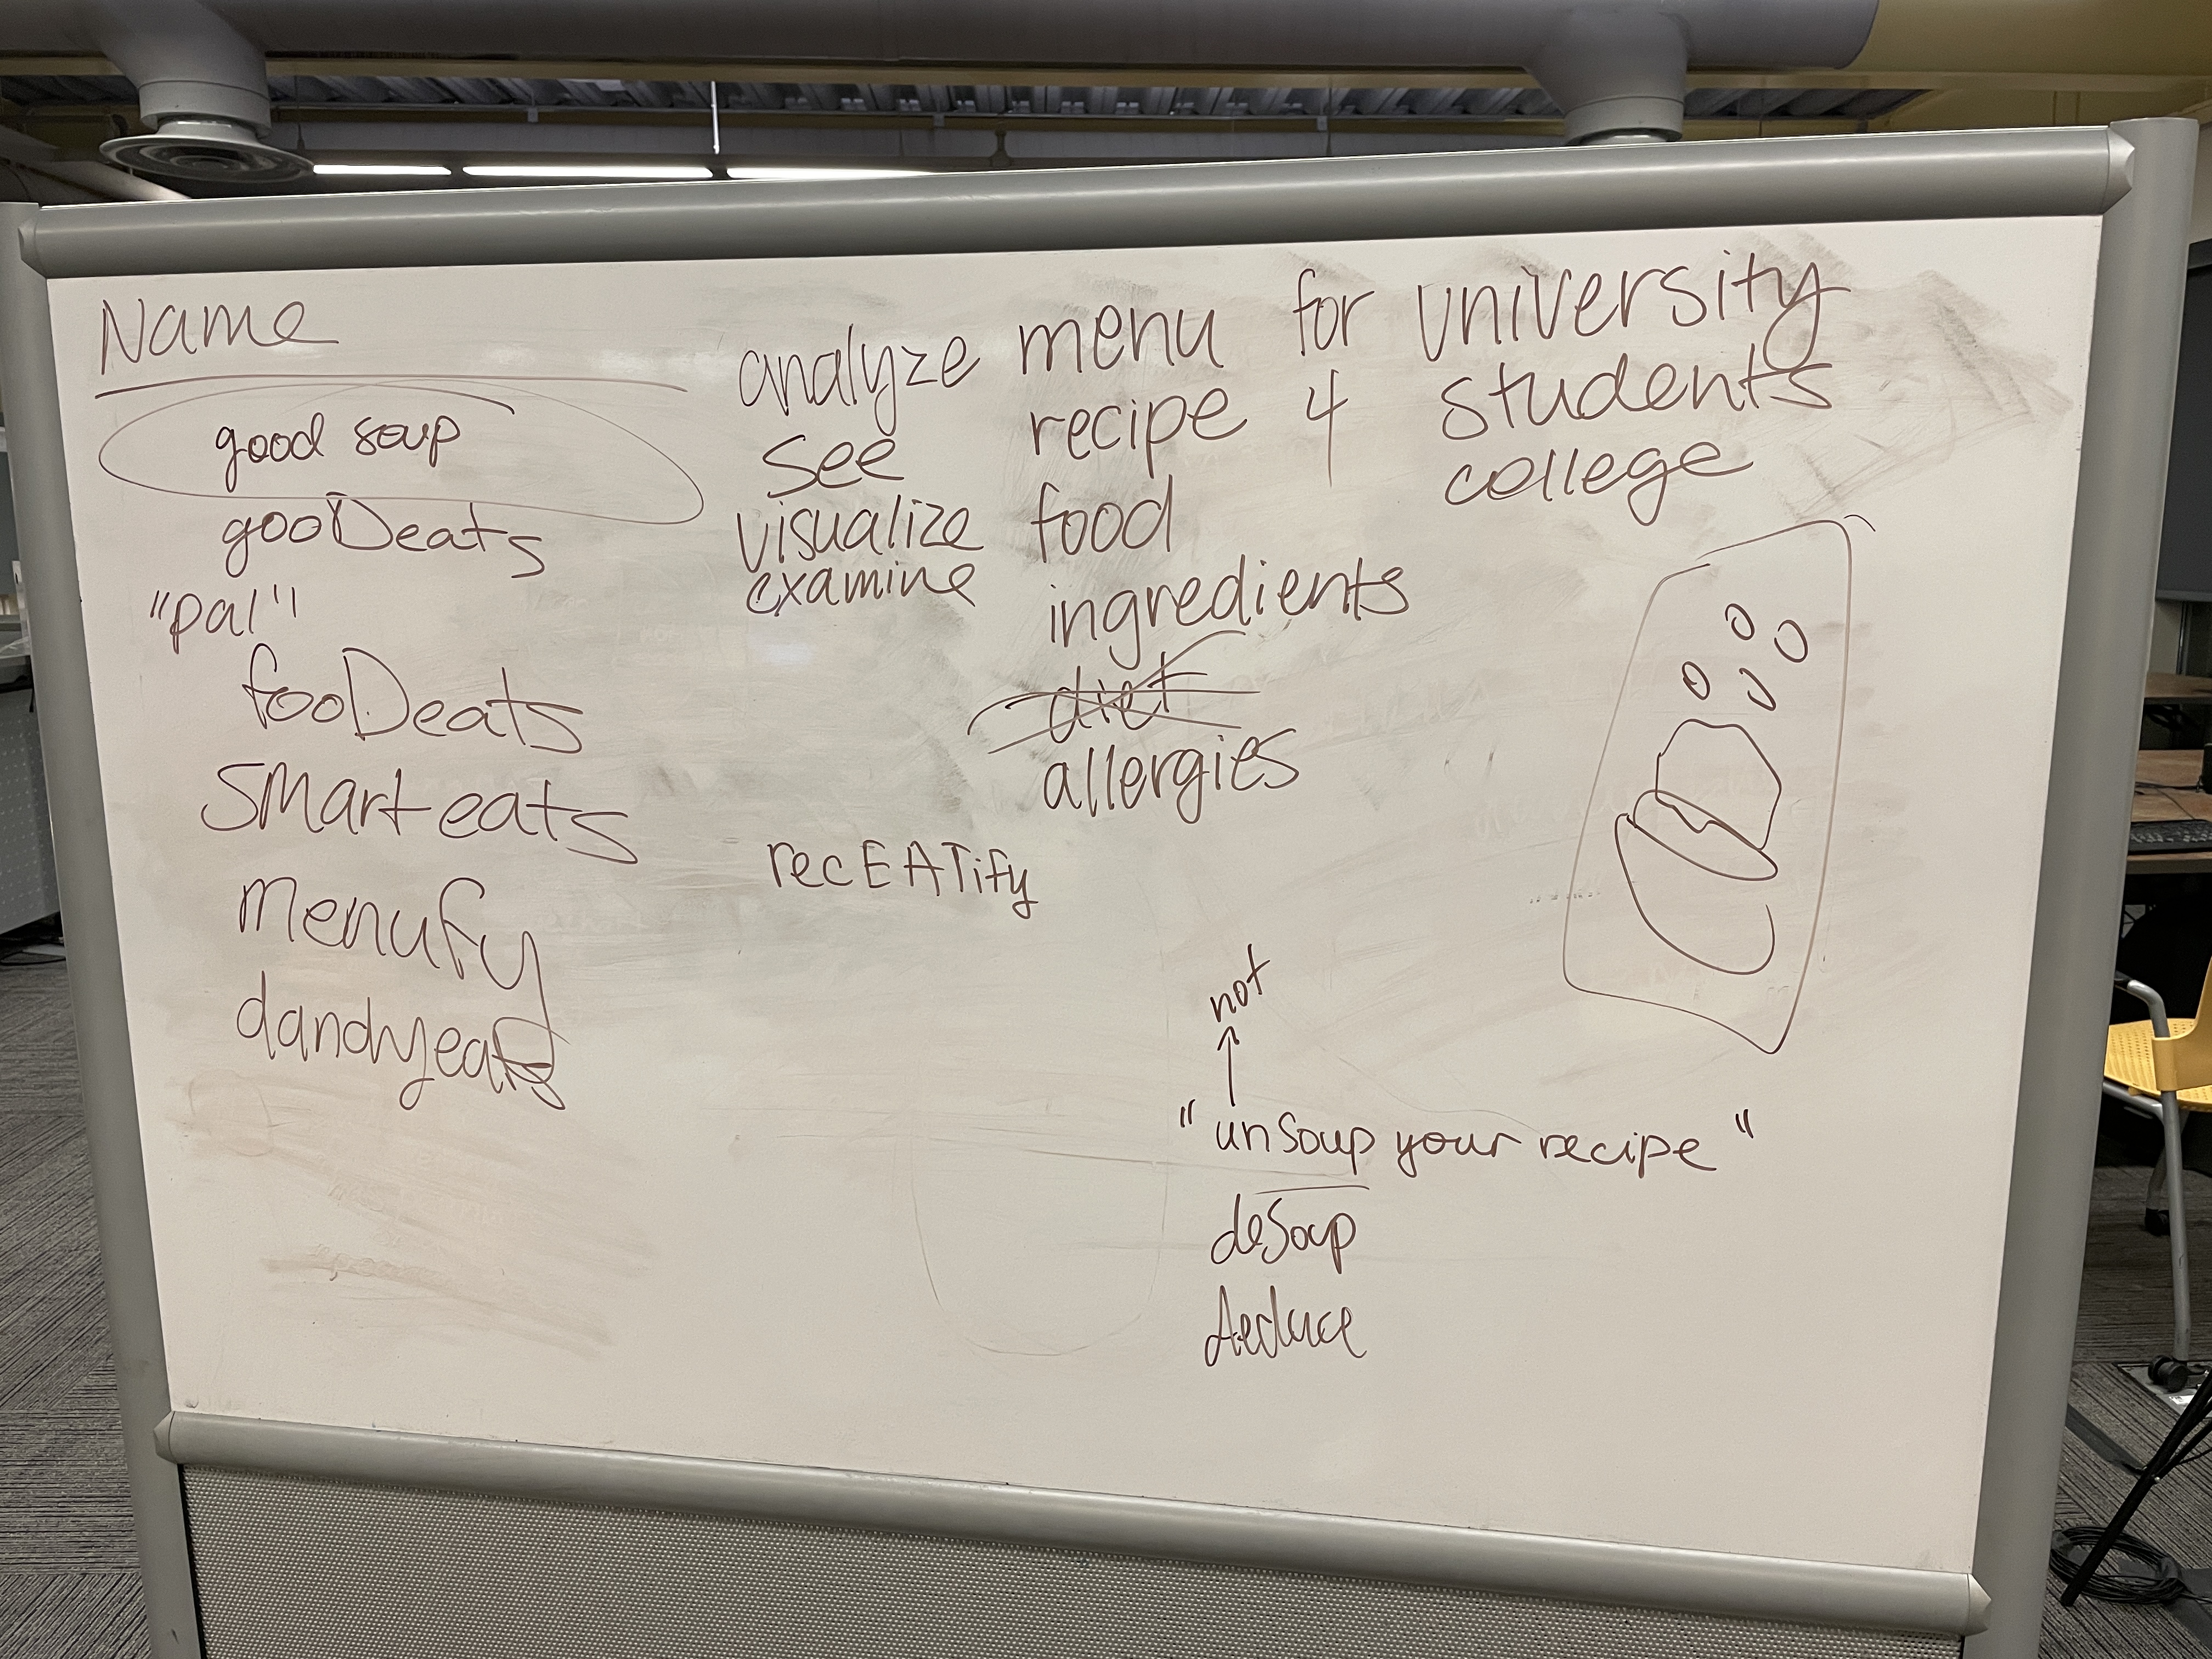 Name
good soup
gooDeats
"pal"
fooDeats
Smart eats
menufy
dandyeats
analyze menu for university
see recipe 4 students
visualize food college
examine ingredients
diet
allergies
recEATify
not
"unSoup your recipe"
deSoup
deduce